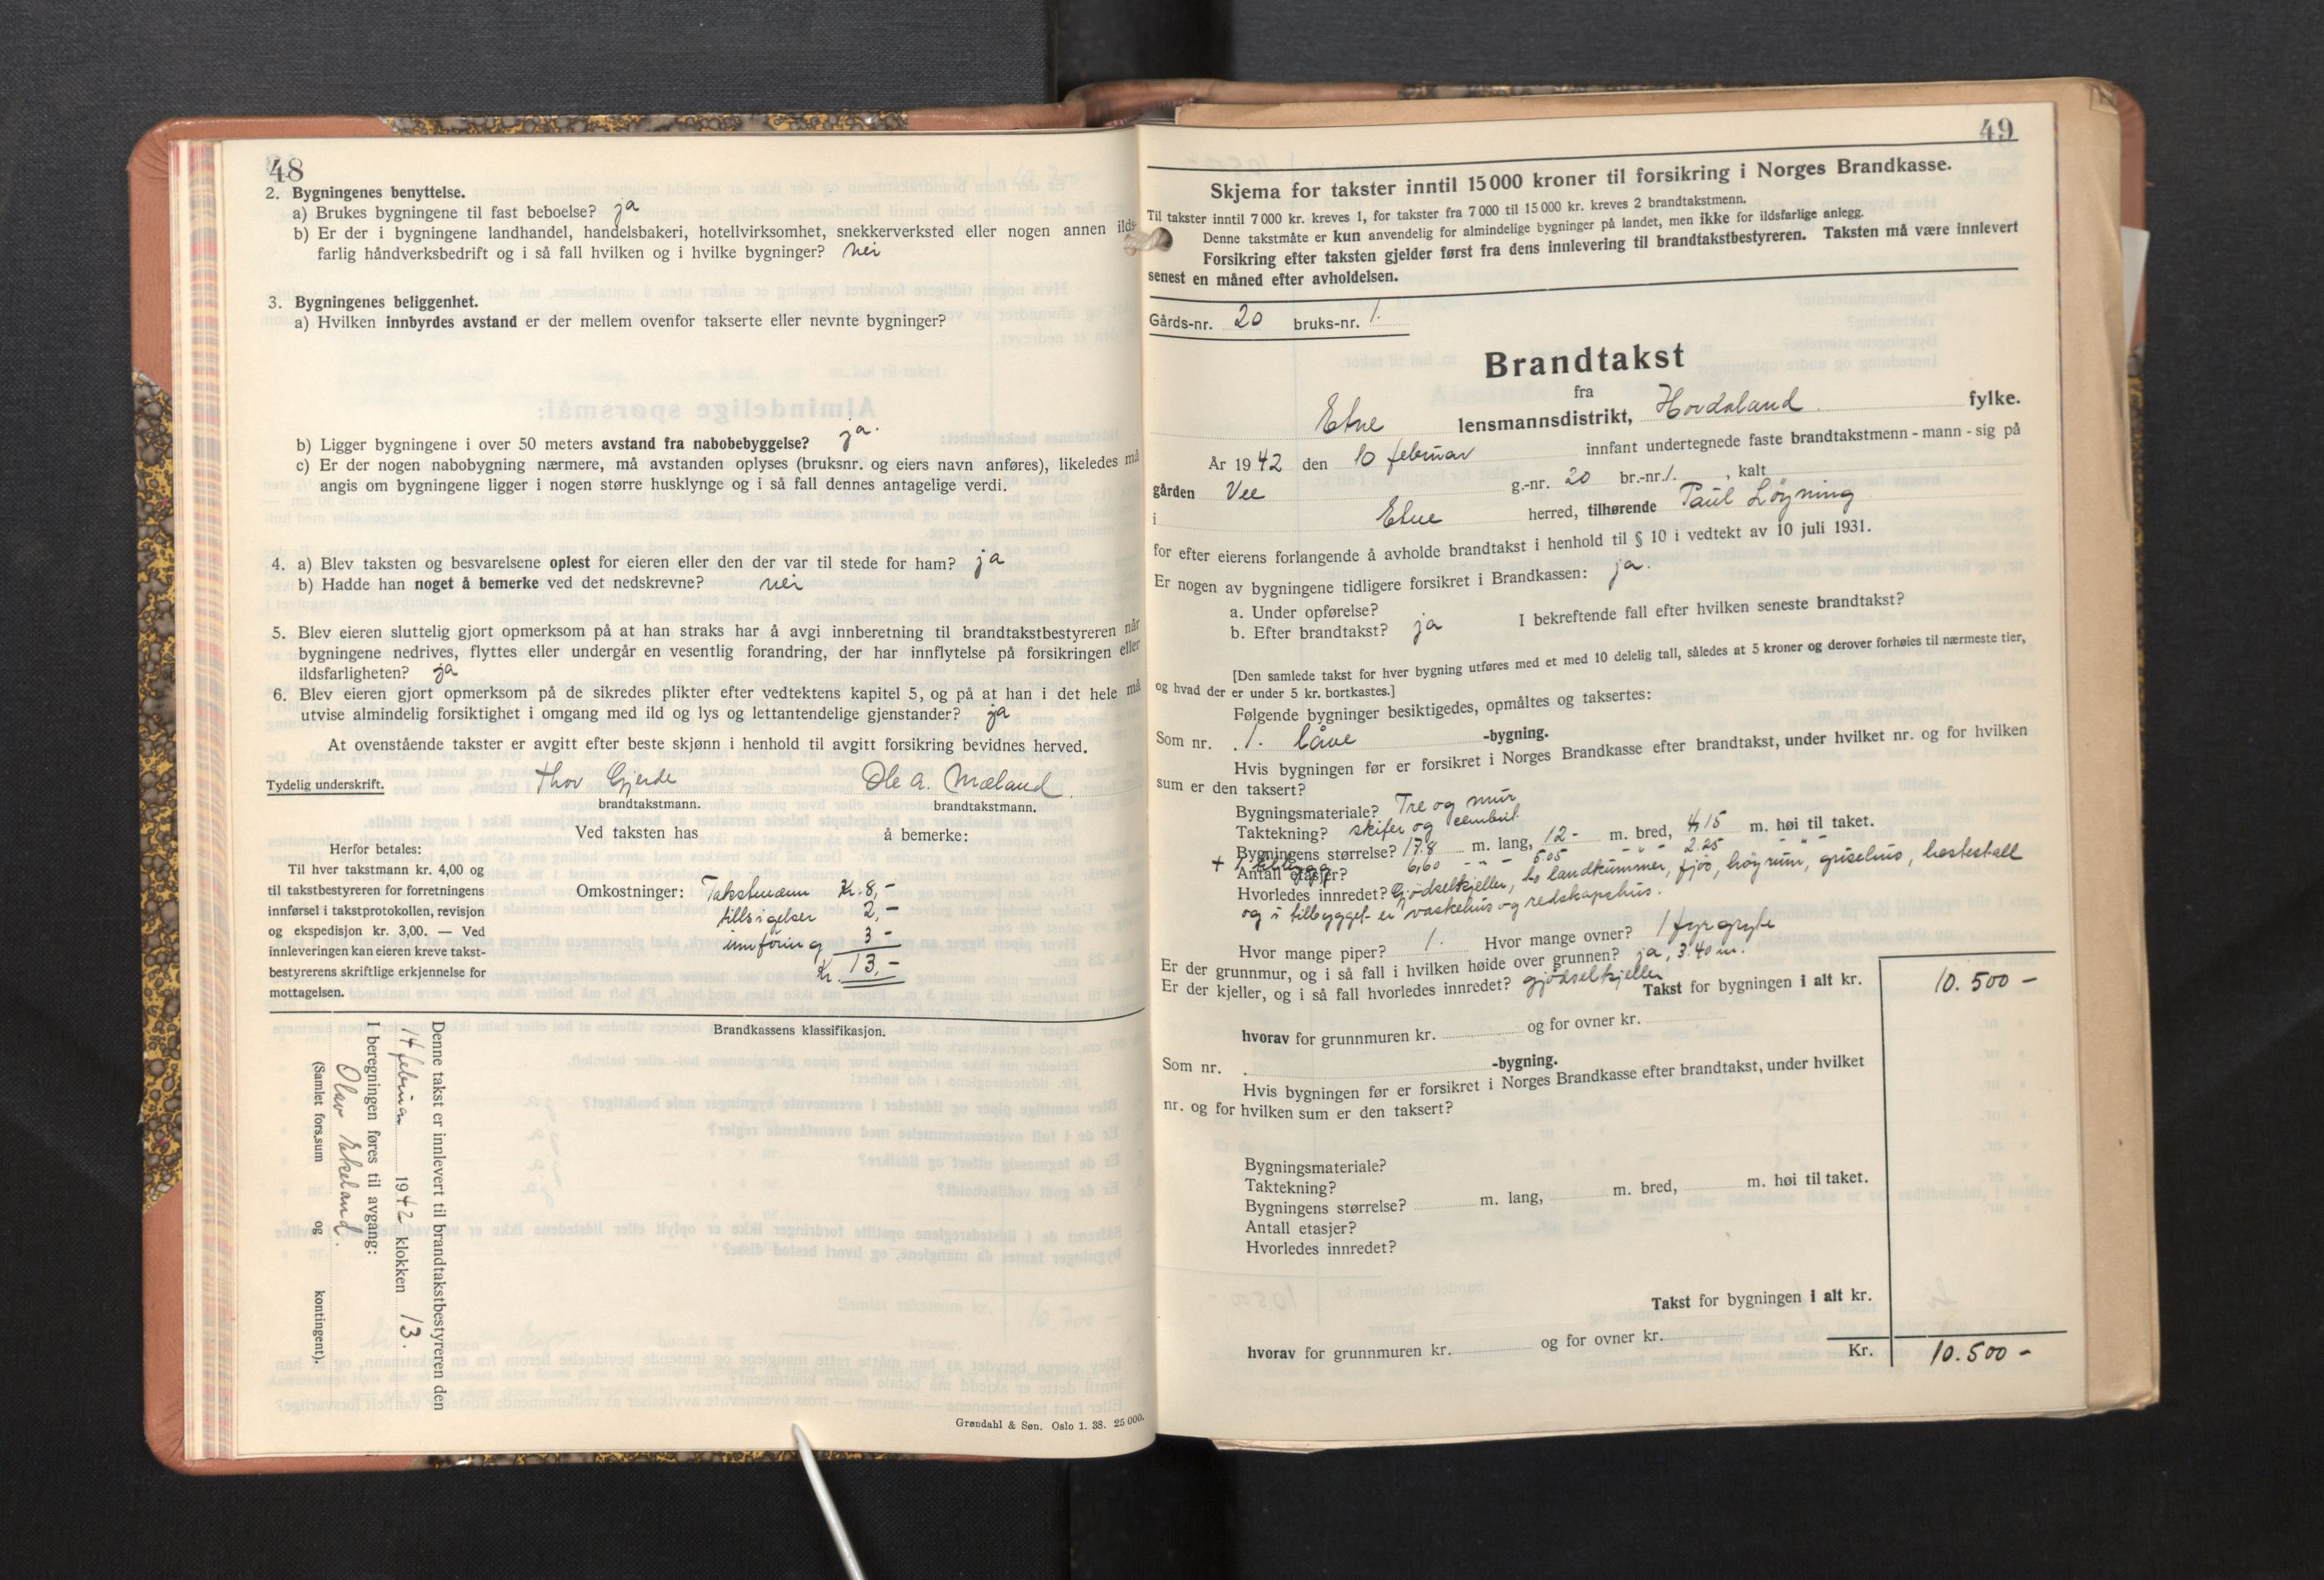 48
2. Bygningenes benyttelse.
a) Brukes bygningene til fast beboelse? ja
b) Er der i bygningene landhandel, handelsbakeri, hotellvirksomhet, snekkerverksted eller nogen annen ilds-
farlig håndverksbedrift og i så fall hvilken og i hvilke bygninger? nei
3. Bygningenes beliggenhet.
a) Hvilken innbyrdes avstand er der mellem ovenfor takserte eller nevnte bygninger?
b) Ligger bygningene i over 50 meters avstand fra nabobebyggelse? ja.
c) Er der nogen nabobygning nærmere, må avstanden oplyses (bruksnr. og eiers navn anføres), likeledes må
angis om bygningene ligger i nogen større husklynge og i så fall dennes antagelige verdi.
4. a) Blev taksten og besvarelsene oplest for eieren eller den der var til stede for ham? ja
b) Hadde han noget å bemerke ved det nedskrevne? nei
5. Blev eieren sluttelig gjort opmerksom på at han straks har å avgi innberetning til brandtakstbestyreren når
bygningene nedrives, flyttes eller undergår en vesentlig forandring, der har innflytelse på forsikringen eller
ildsfarligheten? ja
6. Blev eieren gjort opmerksom på de sikredes plikter efter vedtektens kapitel 5, og på at han i det hele må
utvise almindelig forsiktighet i omgang med ild og lys og lettantendelige gjenstander? ja
At ovenstående takster er avgitt efter beste skjønn i henhold til avgitt forsikring bevidnes herved.
Tydelig underskrift. Thor Gjerde Ole A. Mæland.
brandtakstmann. brandtakstmann.
Ved taksten has å bemerke:
Herfor betales:
Til hver takstmann kr. 4,00 og
til takstbestyreren for forretningens
innførsel i takstprotokollen, revisjon
og ekspedisjon kr. 3,00. — Ved
innleveringen kan eieren kreve takst-
bestyrerens skriftlige erkjennelse for
mottagelsen.
Omkostninger: Takstmænn Kr. 8,-
tillsigelser 2,-
innføring 3-
Kr. 13,-
Brandkassens klassifikasjon.
Denne takst er innlevert til brandtakstbestyreren den
14 februar 1942 klokken 13.
I beregningen føres til avgang:
Olav Ekeland.
(Samlet fors.sum og kontingent).
Grøndahl & Søn. Oslo 1. 38. 25 000.
49
Skjema for takster inntil 15 000 kroner til forsikring i Norges Brandkasse.
Til takster inntil 7 000 kr. kreves 1, for takster fra 7 000 til 15 000 kr. kreves 2 brandtakstmenn.
Denne takstmåte er kun anvendelig for almindelige bygninger på landet, men ikke for ildsfarlige anlegg.
Forsikring efter taksten gjelder først fra dens innlevering til brandtakstbestyreren. Taksten må være innlevert
senest en måned efter avholdelsen.
Gårds-nr. 20 bruks-nr. 1.
Brandtakst
fra
Etne lensmannsdistrikt, Hordaland fylke.
År 1942 den 10 februar innfant undertegnede faste brandtakstmenn - mann - sig på
gården Vee g.-nr. 20 br.-nr. 1. , kalt
i Etne herred, tilhørende Paul Løyning
for efter eierens forlangende å avholde brandtakst i henhold til § 10 i vedtekt av 10 juli 1931.
Er nogen av bygningene tidligere forsikret i Brandkassen: ja.
a. Under opførelse?
b. Efter brandtakst? ja I bekreftende fall efter hvilken seneste brandtakst?
[Den samlede takst for hver bygning utføres med et med 10 delelig tall, således at 5 kroner og derover forhøies til nærmeste tier,
og hvad der er under 5 kr. bortkastes.]
Følgende bygninger besiktigedes, opmåltes og taksertes:
Som nr. 1. låve -bygning.
Hvis bygningen før er forsikret i Norges Brandkasse efter brandtakst, under hvilket nr. og for hvilken
sum er den taksert?
Bygningsmateriale? Tre og mur
Taktekning? skifer og
Bygningens størrelse? 17.8 m. lang, 12 - m. bred, 4,15 m. høi til taket.
+ 1 tilbygg 6,60 - " - 5.05 - " - 2.25 - " -
Antall etasjer?
Hvorledes innredet? Gjødselkjeller, to landkummer, fjøs, høyrum, grisehus, hestestall
og i tilbygget er vaskehus og redskapshus.
Hvor mange piper? 1. Hvor mange ovner? 1 fyrgryte
Er der grunnmur, og i så fall i hvilken høide over grunnen? ja, 3.40 m.
Er der kjeller, og i så fall hvorledes innredet? gjødselkjeller
Takst for bygningen i alt kr. 10.500 -
hvorav for grunnmuren kr. og for ovner kr.
Som nr. -bygning.
Hvis bygningen før er forsikret i Norges Brandkasse efter brandtakst, under hvilket
nr. og for hvilken sum er den taksert?
Bygningsmateriale?
Taktekning?
Bygningens størrelse? m. lang, m. bred, m. høi til taket.
Antall etasjer?
Hvorledes innredet?
Takst for bygningen i alt kr.
hvorav for grunnmuren kr. og for ovner kr.
Kr. 10.500 -